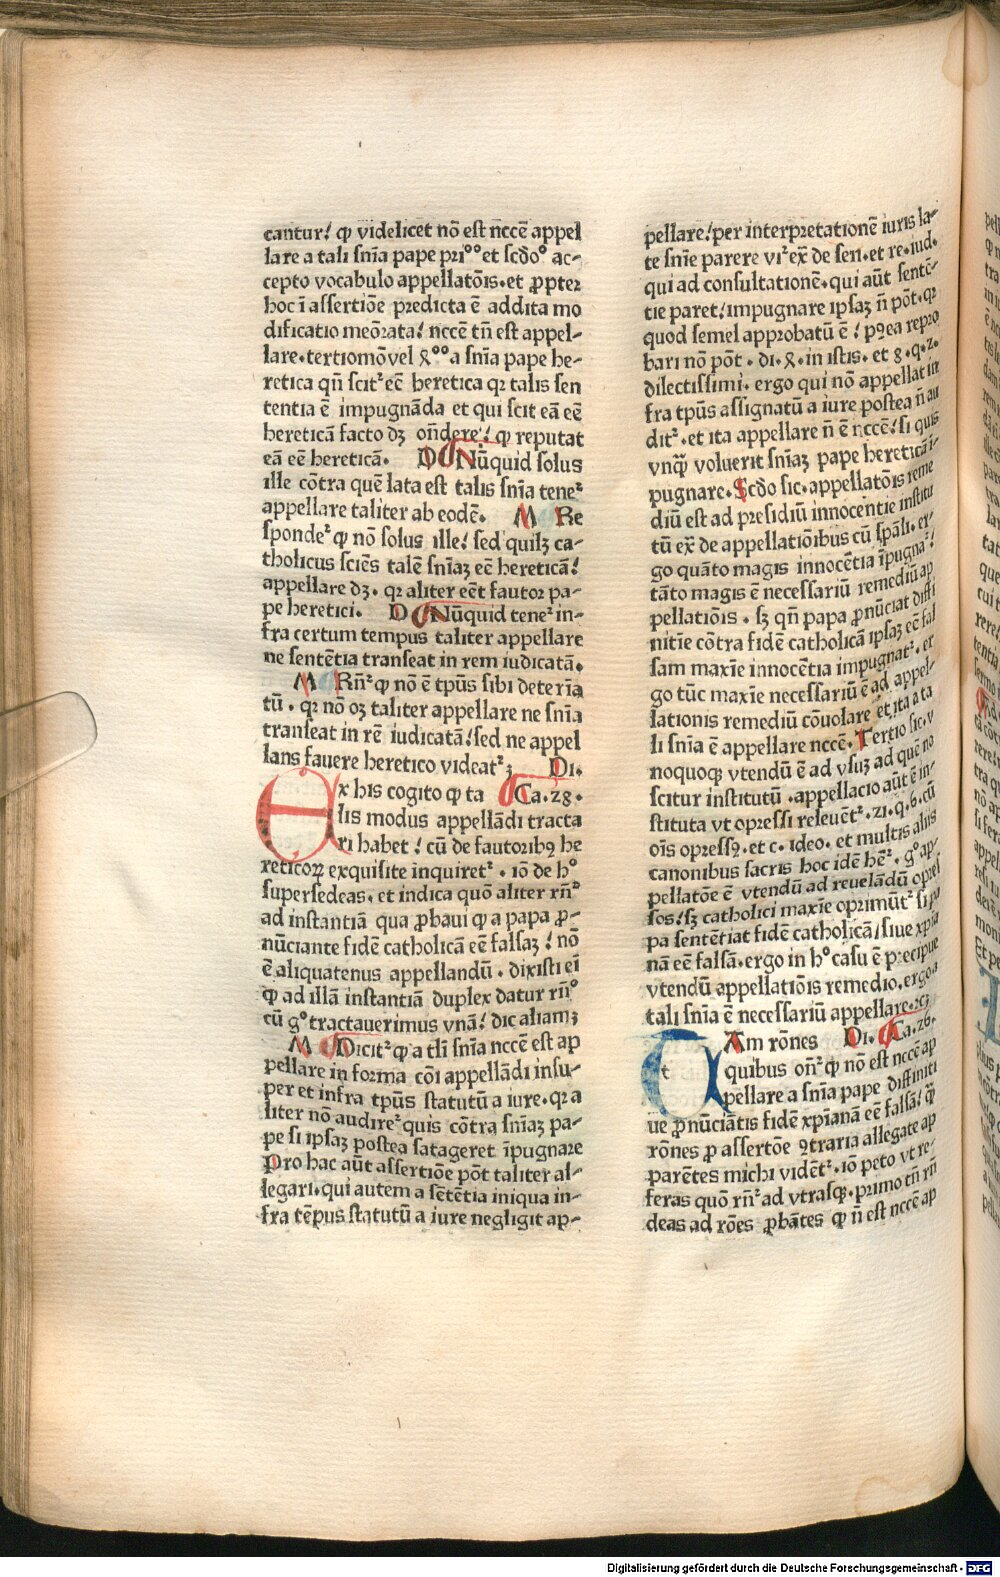 cantur! ꝙ videlicet nō est nccē appel
lare a tali snīa pape pri°° et scdo° ac-
cepto vocabulo appellatōis.et ꝓpter
hoc ī assertiōe predicta ē addita mo
dificatio meōrata! nccē tn̄ est appel-
lare.tertiomō vel ꝗ°° a snīa pape he-
retica qn̄ scitᷣ eē heretica qꝛ talis sen
tentia ē impugnāda et qui scit eā eē
hereticā facto dꝫ on̄dere! ꝙ reputat
eā eē hereticā. D Nūquid solus
ille cōtra quē lata est talis snīa teneᷣ
appellare taliter ab eodē. M Re
spondeᷣ ꝙ nō solus ille! sed quilꝫ ca-
tholicus sciēs talē snīaꝫ eē hereticā!
appellare dꝫ. qꝛ aliter eēt fautoꝛ pa-
pe heretici. D Nūquid teneᷣ in-
fra certum tempus taliter appellare
ne sentētia transeat in rem iudicatā.
M Rn̄ᷣ ꝙ nō ē tp̄us sibi deter īa
tū . qꝛ nō oꝫ taliter appellare ne snīa
transeat in rē iudicatā! sed ne appel
lans fauere heretico videatᷣ ꝫ Di.
Ex his cogito ꝙ ta Ca.28.
lis modus appellādi tracta
ri habet ! cū de fautoribꝰ he
reticoꝝ exquisite inquiretᷣ . iō de h°
supersedeas. et indica quō aliter rn̄ᷣ
ad instantiā qua ꝓbaui ꝙ a papa ꝓ-
nūciante fidē catholicā eē falsaꝫ ! nō
ē aliquatenus appellandū . dixisti eī
ꝙ ad illā instantiā duplex datur rn̄°
cū g° tractauerimus vnā! dic aliamꝫ
M Dicitᷣ ꝙ a tli snīa nccē est ap
pellare in forma cōi appellādi insu-
per et infra tp̄us statutū a iure.qꝛ a
liter nō audireᷣ quis cōtra snīaꝫ pa-
pe si ipsaꝫ postea satageret īpugnare
Pro hac aūt assertiōe pōt taliter al-
legari.qui autem a sētētia iniqua in-
fra tēpus statutū a iure negligit ap-
pellare! per interpretationē iuris la-
te snīe parere viᷣ ex̄ de sen.et re.iud.
qui ad consultationē.qui aūt sentē-
tie paret! impugnare ipsaꝫ n̄ pōt.qꝛ
quod semel approbatū ē ! pꝰea repro
bari nō pōt . di. ꝗ. in istis. et 8.q.2.
dilectissimi. ergo qui nō appellat in
fra tp̄us assignatū a iure postea n̄ au
ditᷣ. et ita appellare n̄ ē nccē! si quis
vnqᷓ voluerit snīaꝫ pape hereticā ī-
pugnare. Scdo sic.appellatōis reme
diū est ad presidiū innocentie institu
tū ex̄ de appellatiōibus cū spāli. er-
go quāto magis innocētia īpugnaᷣ!
tāto magis ē necessariū remediū ap
pellatiōis . sꝫ qn̄ papa ꝓnūciat diffi
nitīe cōtra fidē catholicā ipsaꝫ eē fal
sam maxīe innocētia impugnatᷣ. er
go tūc maxīe necessariū ē ad appel-
lationis remediū cōuolare et ita a ta
li snīa ē appellare nccē. Tertio sic. v
noquoqꝫ vtendū ē ad vsuꝫ ad quē no
scitur institutū .appellacio aūt ē in-
stituta vt opressi releuētᷣ. 21.q.6.cū
oīs opressꝰ.et c. ideo. et multis aliis
canonibus sacris hoc idē hēᷣ. g° ap-
pellatōe ē vtendū ad reuelādū opres
sos! sꝫ catholici maxīe oprimūtᷣ si pa
pa sentētiat fidē catholicā/ siue xpia
nā eē falsā.ergo in h° casu ē precipue
vtendū appellatiōis remedio.ergo a
tali snīa ē necessariū appellare.ꝛcꝫ
Tam rōnes Di. Ca.26.
quibus on̄ᷣ ꝙ nō est nccē ap
pellare a snīa pape diffiniti
ue ꝓnūciātis fidē xpianā eē falsā! qᷓ
rōnes ꝓ assertōe ꝯtraria allegate ap
parētes michi vidētᷣ. iō peto vt re-
feras quō rn̄ᷣ ad vtrasqꝫ. primo tn̄ rn̄
deas ad rōes ꝓbātes ꝙ n̄ est nccē ap
Digitalisierung gefördert durch die Deutsche Forschungsgemeinschaft - DFG